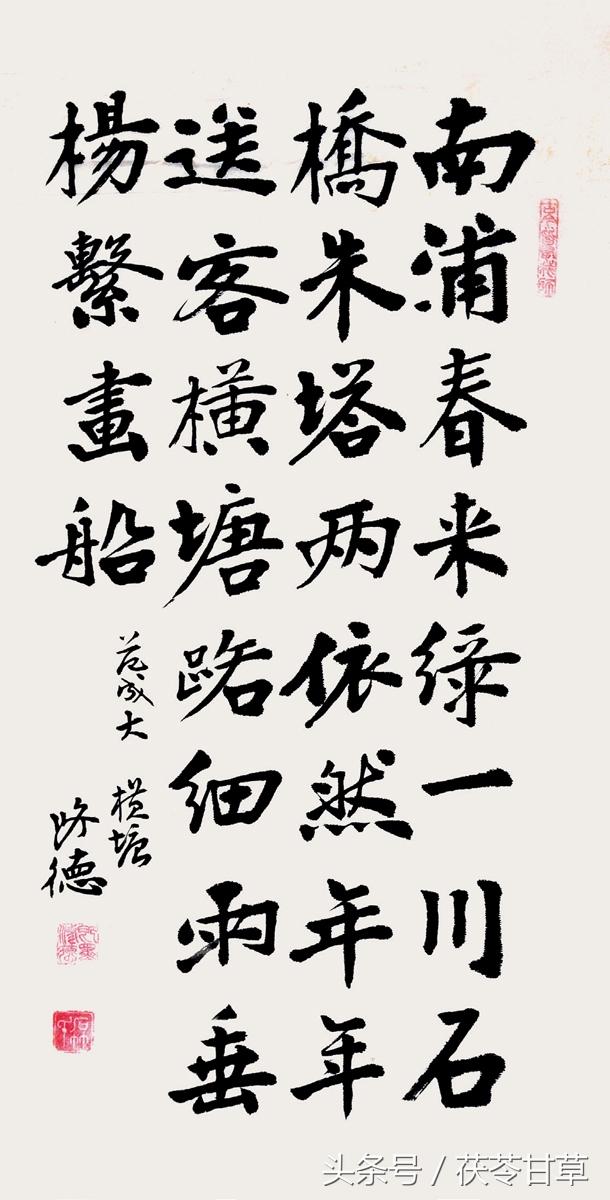 南浦春来绿一川石
橋朱塔两依然年年
送客横塘路细雨垂
楊繫畫船
范成大 横塘
德
头条号／茯苓甘草